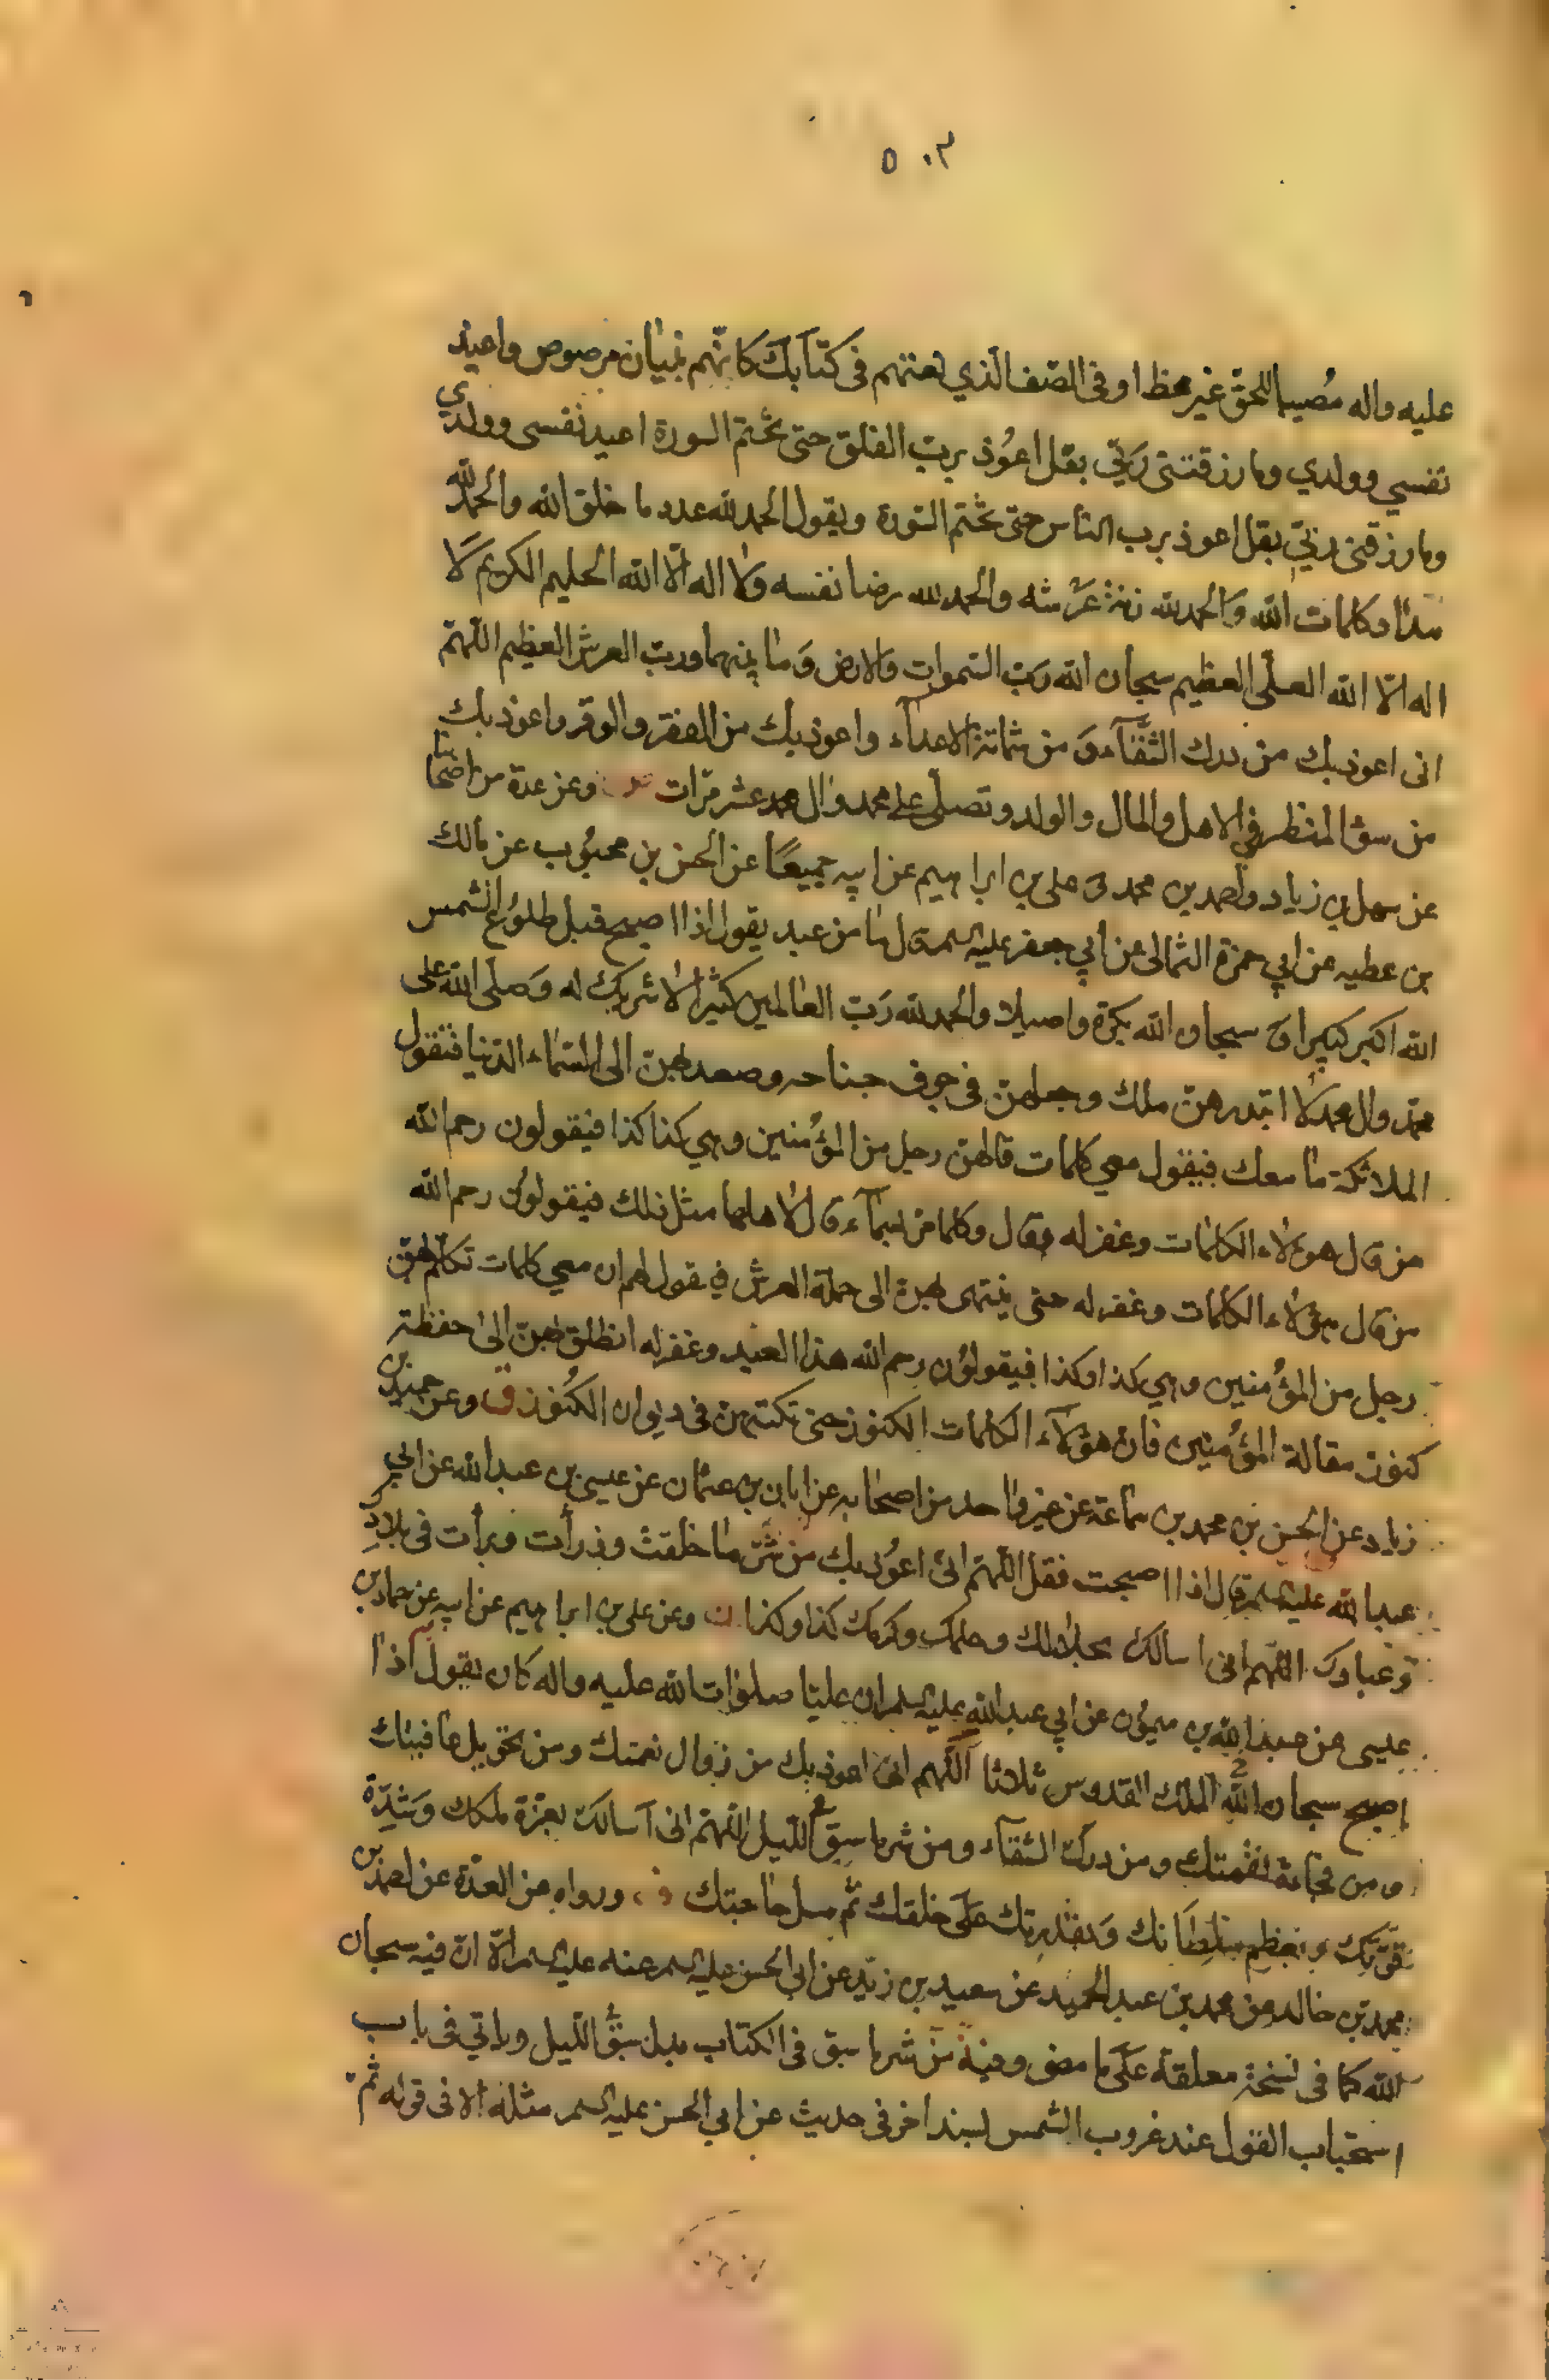 ٥٠٣
عليه واله مُصيبا للحق غير مخطا او في الصّف الذي نعتهم في كتابك كانّهم بنيان مرصوص واعيذ
نفسي وولدي وما رزقتني رَبّي بقل اعُوذ بربّ الفلق حتى تختم السورة اعيد نفسى وولدي
وما رزقنى ربّي بقل اعوذ برب الناس حتى تختم السّورة ويقول الحمد لله عدد ما خلق الله والحمد لله
مداد كلمات الله وَالحمد لله زنة عَرْشه والحمد لله رضا نفسه وَلا اله الّا الله الحليم الكريم لا
اله الّا الله العلّى العظيم سبحان الله رَبّ السّموات والارض وَما بينهما وربّ العرش العظيم اللّهمّ
انى اعوذ بك من درك الشّقآء وَ من شماتة الاعدآء واعوذ بك من الفقر والوقر واعوذ بك
من سوء المنظر في الاهل والمال والولد وتصلّى على محمد وال محمد عشر مرّات وعن عدة من اصحابنا
عن سهل بن زياد واحمد بن محمد وَ على بن ابراهيم عن ابيه جميعًا عن الحسن بن محبُوب عن مالك
بن عطيه عن ابي حمزة الثمالى عن ابي جعفر عليه السلم قال ما من عبد يقول اذا اصبح قبل طلوُع الشمس
الله اكبر كبيرا وَ سبحان الله بكرة واصيلا والحمد لله رَبّ العالمين كثيرا لا شريك له وَصلّى الله على
محمّد وال محمد الا ابتدرهنّ ملك وجعلهنّ في جوف جناحه وصعد بهنّ الى السّماء الدّنيا فتقول
الملائكة ما معك فيقول معي كلمات قالهنّ رجل من المؤُمنين وهي كذا كذا فيقولون رحم الله
من قال هوءلاء الكلمات وغفر له فقال وكلما مر بسمآء قال لاهلها مثل ذلك فيقولوُن رحم الله
من قال هؤلاء الكلمات وغفر له حتى ينتهى بهنّ الى حملة العرش فيقول لهم ان معي كلمات تكلّم بهنّ
رجل من المؤُمنين وهي كذا وكذا فيقولوُن رحم الله هذا العبد وغفر له انطلق بهنّ الى حفظة
كنوز مقالة المؤُمنين فانّ هؤلآء الكلمات الكنوز حتى تكتبهن في ديوان الكُنُوز ق وعن حميد بن
زياد عن الحسن بن محمد بن سماعة عن غير واحد من اصحابه عن ابان بن عثمان عن عيسى بن عبد الله عن ابي
عبد الله عليه السلم قال اذا اصبحت فقل اللّهمّ انّى اعوُذ بك من شَرّ ما خلقت وذرأت وبرأت في بلادك
وَعبادك اللّهم انى اسالك بجلالك وحلمك وكرمك كذا وكذا وعن على بن ابراهيم عن ابيه عن حماد بن
عيسى عن عبد الله بن ميموُن عن ابي عبد الله عليه السلم ان عليّا صلوات الله عليه واله كان يقول اذا
اصبح سبحان الله الملك القدوس ثلاثا اللّهم انى اعوذ بك من زوال نعمتك ومن تحويل عافيتك
ومن فجاءة نقمتك ومن درك الشقآء ومن شر ما سبق اللّيل اللّهمّ انى اسالك بعزّة ملكك وَشدّة
قوّتك وبعظم سلطانك وَبقدرتك عَلى خلقك ثم سل حاجتك ورواه عن العدّة عن احمد بن
محمد بن خالد عن محمد بن عبد الحميد عن سعيد بن زيد عن ابي الحسن عليه السلم عنه عليه السلم الّا ان فيه سبحان
الله كما في نسخة معلقة عَلى ما مضى وفيه من شر ما سبق في الكتاب بدل سبق اللّيل وياتي في باب
استحباب القول عند غروب الشمس بسند اخر في حديث عن ابي الحسن عليه السلم مثله الا في قوله ثم